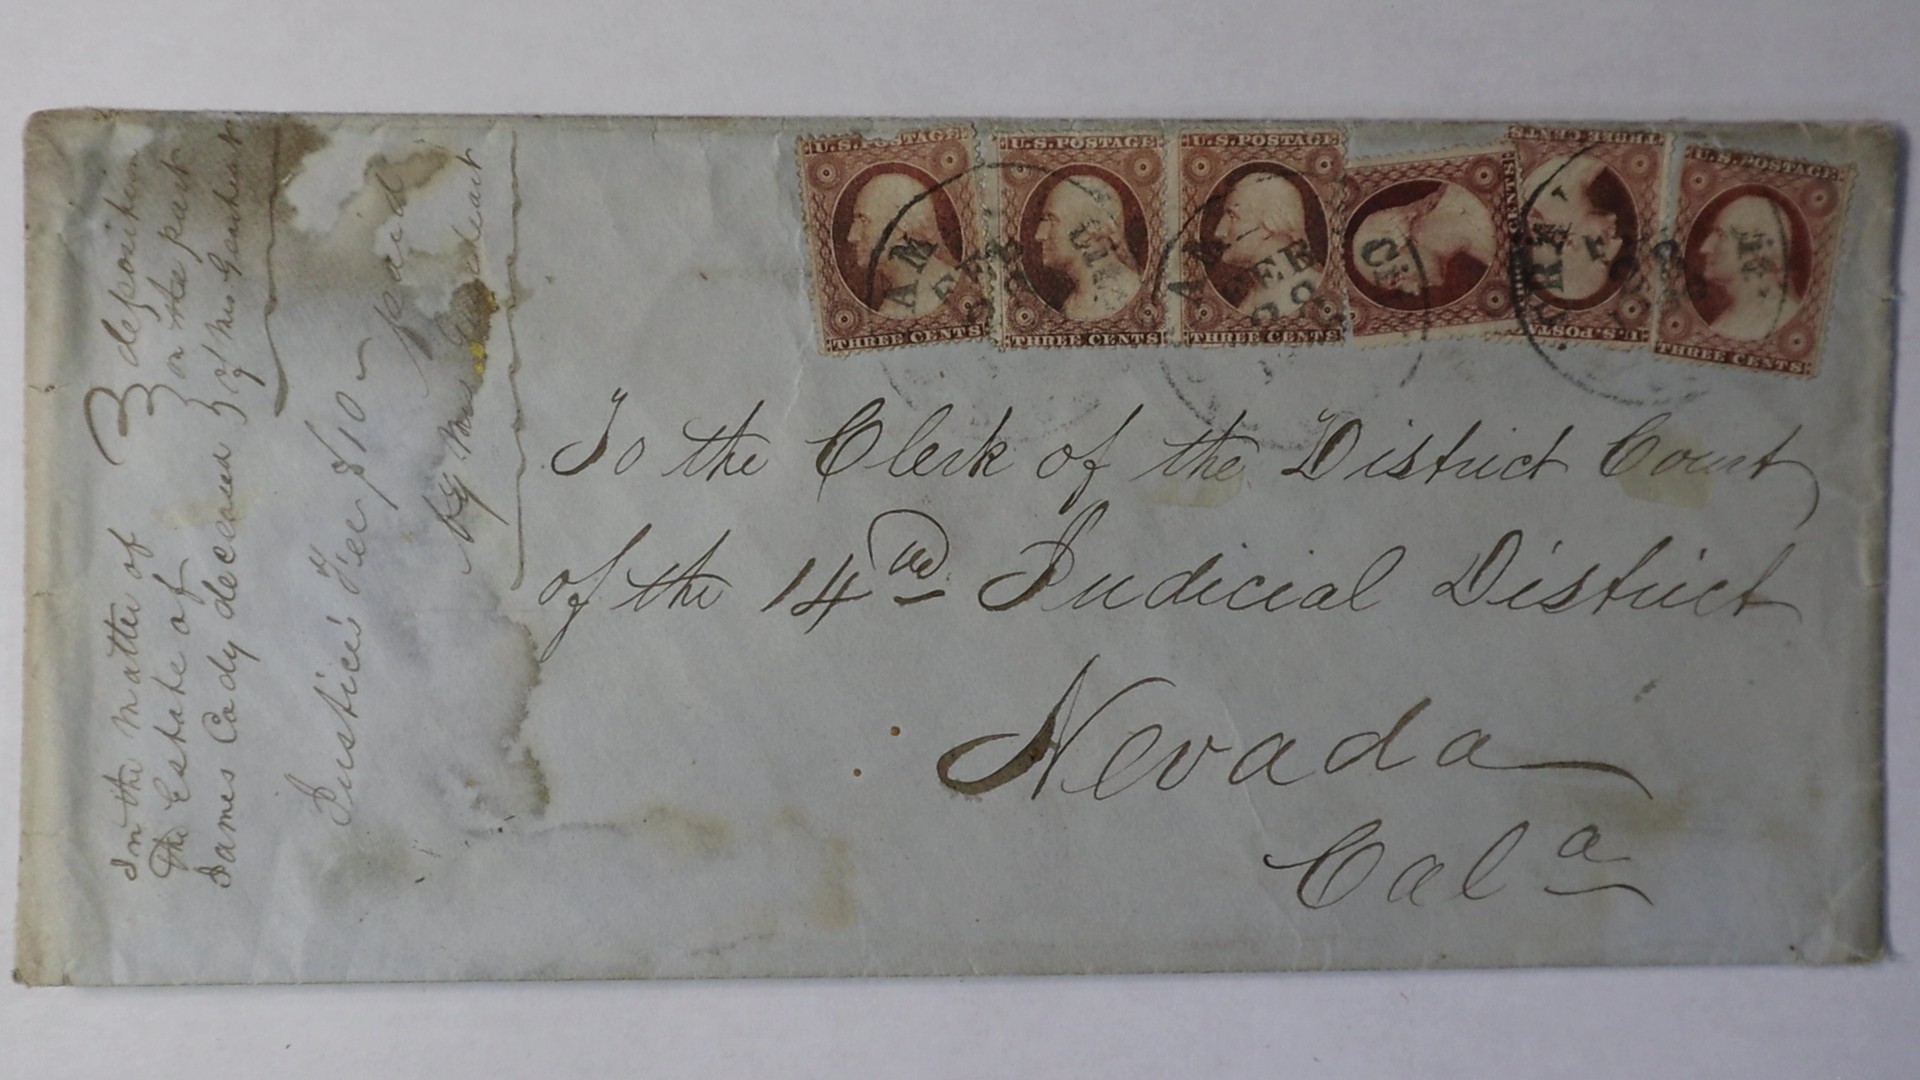 In the Matter of
The Estate of
James Cady deceased
3 deposition
on the part
of Mrs Gearheart
Justice's Fee $10 paid
by Mrs Gearheart
U.S. POSTAGE
THREE CENTS
U.S. POSTAGE
THREE CENTS
U.S. POSTAGE
THREE CENTS
THREE CENTS
U.S. POSTAGE
U.S. POSTAGE
THREE CENTS
AM
FEB
AM
FEB
To the Clerk of the District Court
of the 14 Judicial District
Nevada
Cala